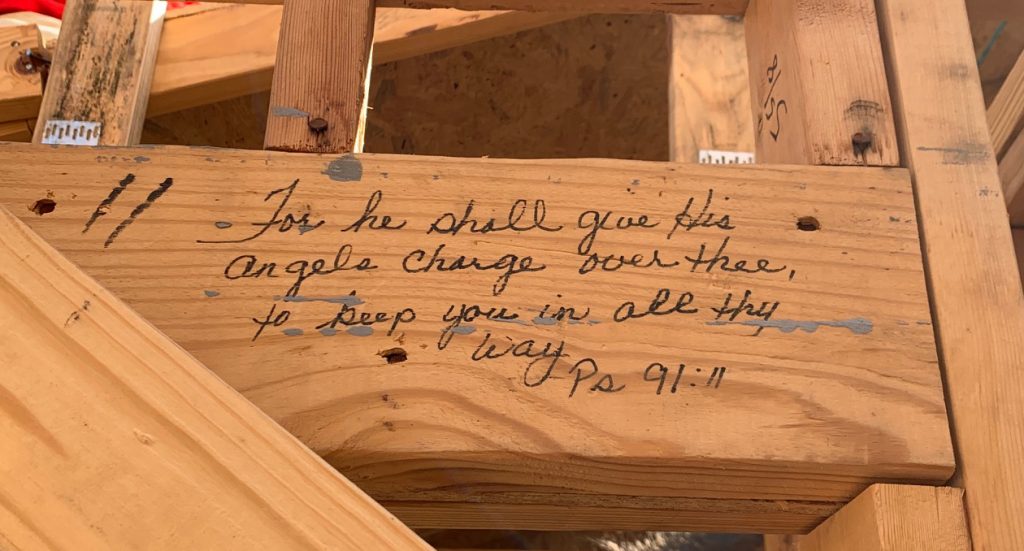 11
For he shall give His
angels charge over thee,
to keep you in all thy
way
Ps 91:11